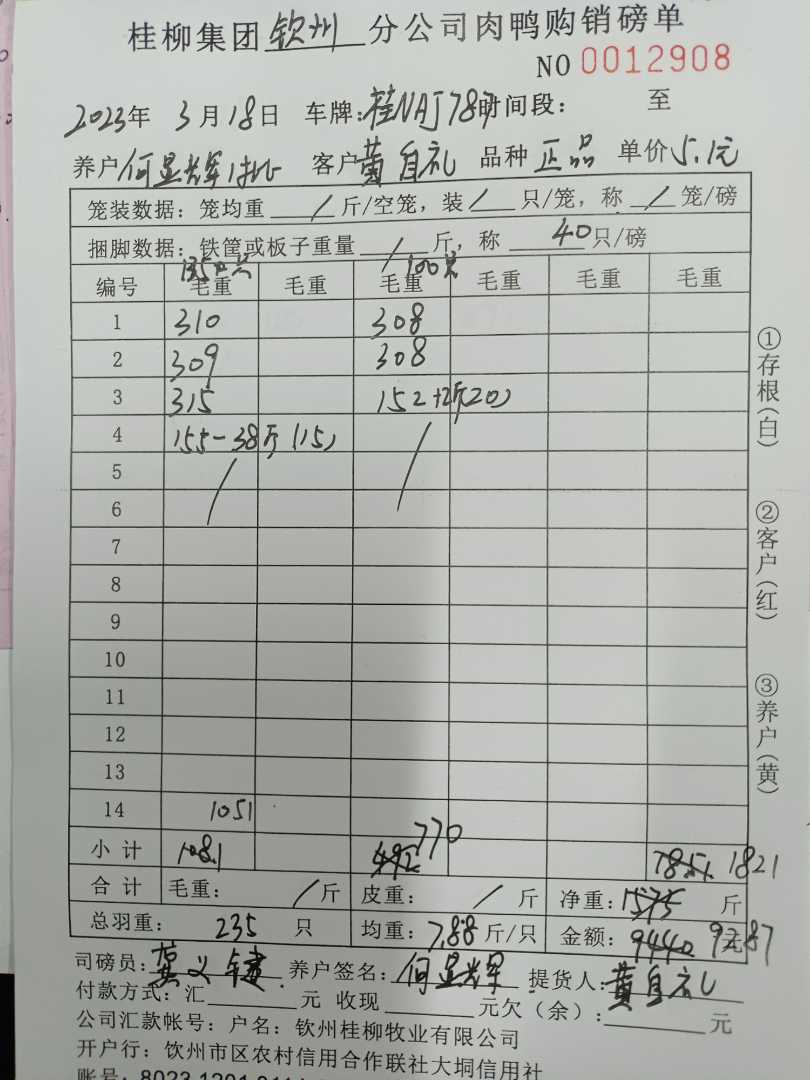 桂柳集团 钦州 分公司肉鸭购销磅单
NO 0012908
2023年 3月18日 车牌:桂NAJ787 时间段: 至
养户 何显辉 客户 黄自礼 品种 正品 单价 5.1元
笼装数据：笼均重 / 斤/空笼，装 / 只/笼，称 / 笼/磅
捆脚数据：铁筐或板子重量 / 斤，称 40 只/磅
135只 100只
编号 毛重 毛重 毛重 毛重 毛重 毛重
1 310 308
2 309 308
3 315 152+2斤(20)
4 155-38斤(15)
5
6
7
8
9
10
11
12
13
14 1051
小计 770 1821
合计 毛重: / 斤 皮重: / 斤 净重: 斤
总羽重: 235 只 均重: 7.88 斤/只 金额: 9440. 9287 元
司磅员: 养户签名: 何显辉 提货人: 黄自礼
付款方式：汇 元 收现 元欠（余）: 元
公司汇款帐号：户名：钦州桂柳牧业有限公司
开户行：饮州市区农村信用合作联社大垌信用社
账号: 8023 1201
①存根(白)
②客户(红)
③养户(黄)